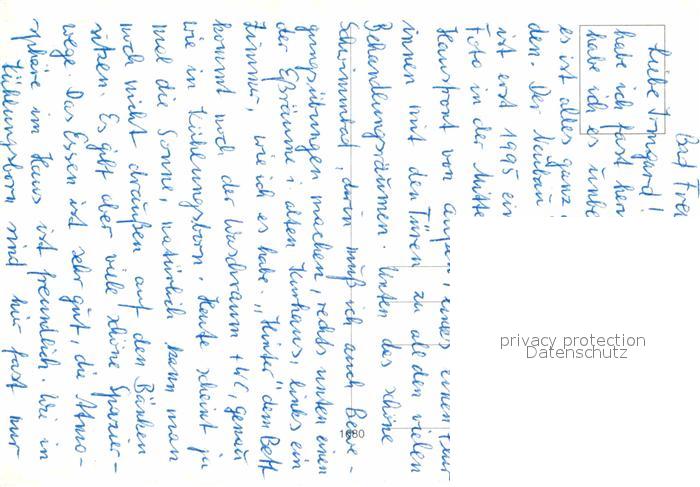 Bad Frei
Liebe Irmgard!
habe ich fast her
habe ich es
es ist alles ganz
den. Der Neubau
ist erst 1995 ein
Foto in der Mitte
Hausfront von außen, eines einen Flur
innen mit den Türen zu all den vielen
Behandlungsräumen. Unten das schöne
Schwimmbad, darin muß ich auch Bewe-
gungsübungen machen, rechts unten einen
der Eßräume i. alten Kurhaus, links ein
Zimmer, wie ich es habe. „Hinter" dem Bett
kommt noch der Waschraum + WC, genau
wie in Kühlungsborn. Heute scheint ja
mal die Sonne, natürlich kann man
noch nicht draußen auf den Bänken
sitzen. Es gibt aber viele schöne Spazier-
wege. Das Essen ist sehr gut, die Atmo-
sphäre im Haus ist freundlich. Wie in
Kühlungsborn sind hier fast nur
privacy protection
Datenschutz